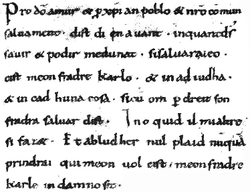 Pro dõ amur & p xpian poblo & nrõ comun
saluament. dist di en auant. inquantdš
sauir & podir medunat. sisaluaraieo.
cist meon fradre Karlo. & in aiudha.
& in cad huna cosa. sicũ om p dreit son
fradra saluar dist. Ino quid il mialtre
si faz&. Et abludher nul plaid nuquã
prindrai qui meon uol cist. meonfradre
Karle in damno sit.